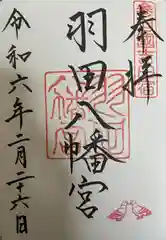 奉拝
羽田八幡宮
令和六年二月二十六日